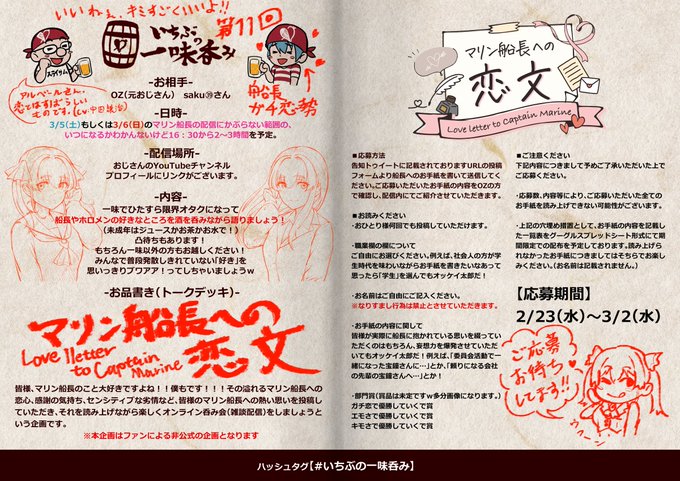 いいねぇ、キミすごくいいよ!!
第11回
いちぶの
一味呑み
スライリム
船長
ガチ恋勢
アルベールさん、
恋とはすばらしい
ものです。(cv中田譲治)
-お相手-
OZ(元おじさん) saku㊴さん
-日時-
3/5(土)もしくは3/6(日)のマリン船長の配信にかぶらない範囲の、
いつになるかわかんないけど16:30から2~3時間を予定。
-配信場所-
おじさんのYouTubeチャンネル
プロフィールにリンクがございます。
-内容-
一味でひたすら限界オタクになって
船長やホロメンの好きなところを酒を呑みながら語りましょう!
(未成年はジュースかお茶かお水で!)
凸待ちもあります!
もちろん一味以外の方もお越しください!
みんなで普段発散しきれていない「好き」を
思いっきりブワアア!ってしちゃいましょうw
-お品書き(トークデッキ)-
マリン船長への
恋文
Love lletter
to Captain
Marine
皆様、マリン船長のこと大好きですよね!!僕もです!!!その溢れるマリン船長への
恋心、感謝の気持ち、センシティブな劣情などを、皆様のマリン船長への熱い思いを投稿し
ていただき、それを読み上げながら楽しくオンライン呑み会(雑談配信)をしましょうと
いう企画です。
※本企画はファンによる非公式の企画となります
マリン船長への
恋文
Love letter to Captain Marine
■応募方法
告知トウィートに記載されておりますURLの投稿
フォームより船長へのお手紙を書いて送信してくだ
さい。ご応募いただいたお手紙の内容をOZの方
で確認し、配信内にてご紹介させていただきます。
■お読みください
・おひとり様何回でも投稿していただけます。
・職業欄の欄について
ご自由にお選びください。例えば、社会人の方が学
生時代を味わいながらお手紙を書きたいなあって
思ったら「学生」を選んでもオッケイ太郎だ!
・お名前はご自由にご記入ください。
※なりすまし行為は禁止とさせていただきます。
・お手紙の内容に関して
皆様が実際に船長に抱かれている思いを綴ってい
ただくのはもちろん、妄想力を爆発させていただい
てもオッケイ太郎だ!例えば、「委員会活動で一
緒になった宝鐘さんに…」とか、「頼りになる会社
の先輩の宝鐘さんへ…」とか!
・部門賞(賞品は未定ですw多分画像になります。)
ガチ恋で優勝していくで賞
エモさで優勝していくで賞
キモさで優勝していくで賞
■ご注意ください
下記内容につきまして予めご了承いただいた上で
ご応募ください。
・応募数、内容等により、ご応募いただいた全ての
お手紙を読み上げできない可能性がございます。
・上記の穴埋め措置として、お手紙の内容を記載し
た一覧表をグーグルスプレッドシート形式にて期
間限定での配布を予定しております。読み上げら
れなかったお手紙につきましてはそちらでお楽し
みください。(お名前は記載されません。)
【応募期間】
2/23(水)~3/2(水)
ご応募
お待ち
してます!!
ハッシュタグ【#いちぶの一味呑み】